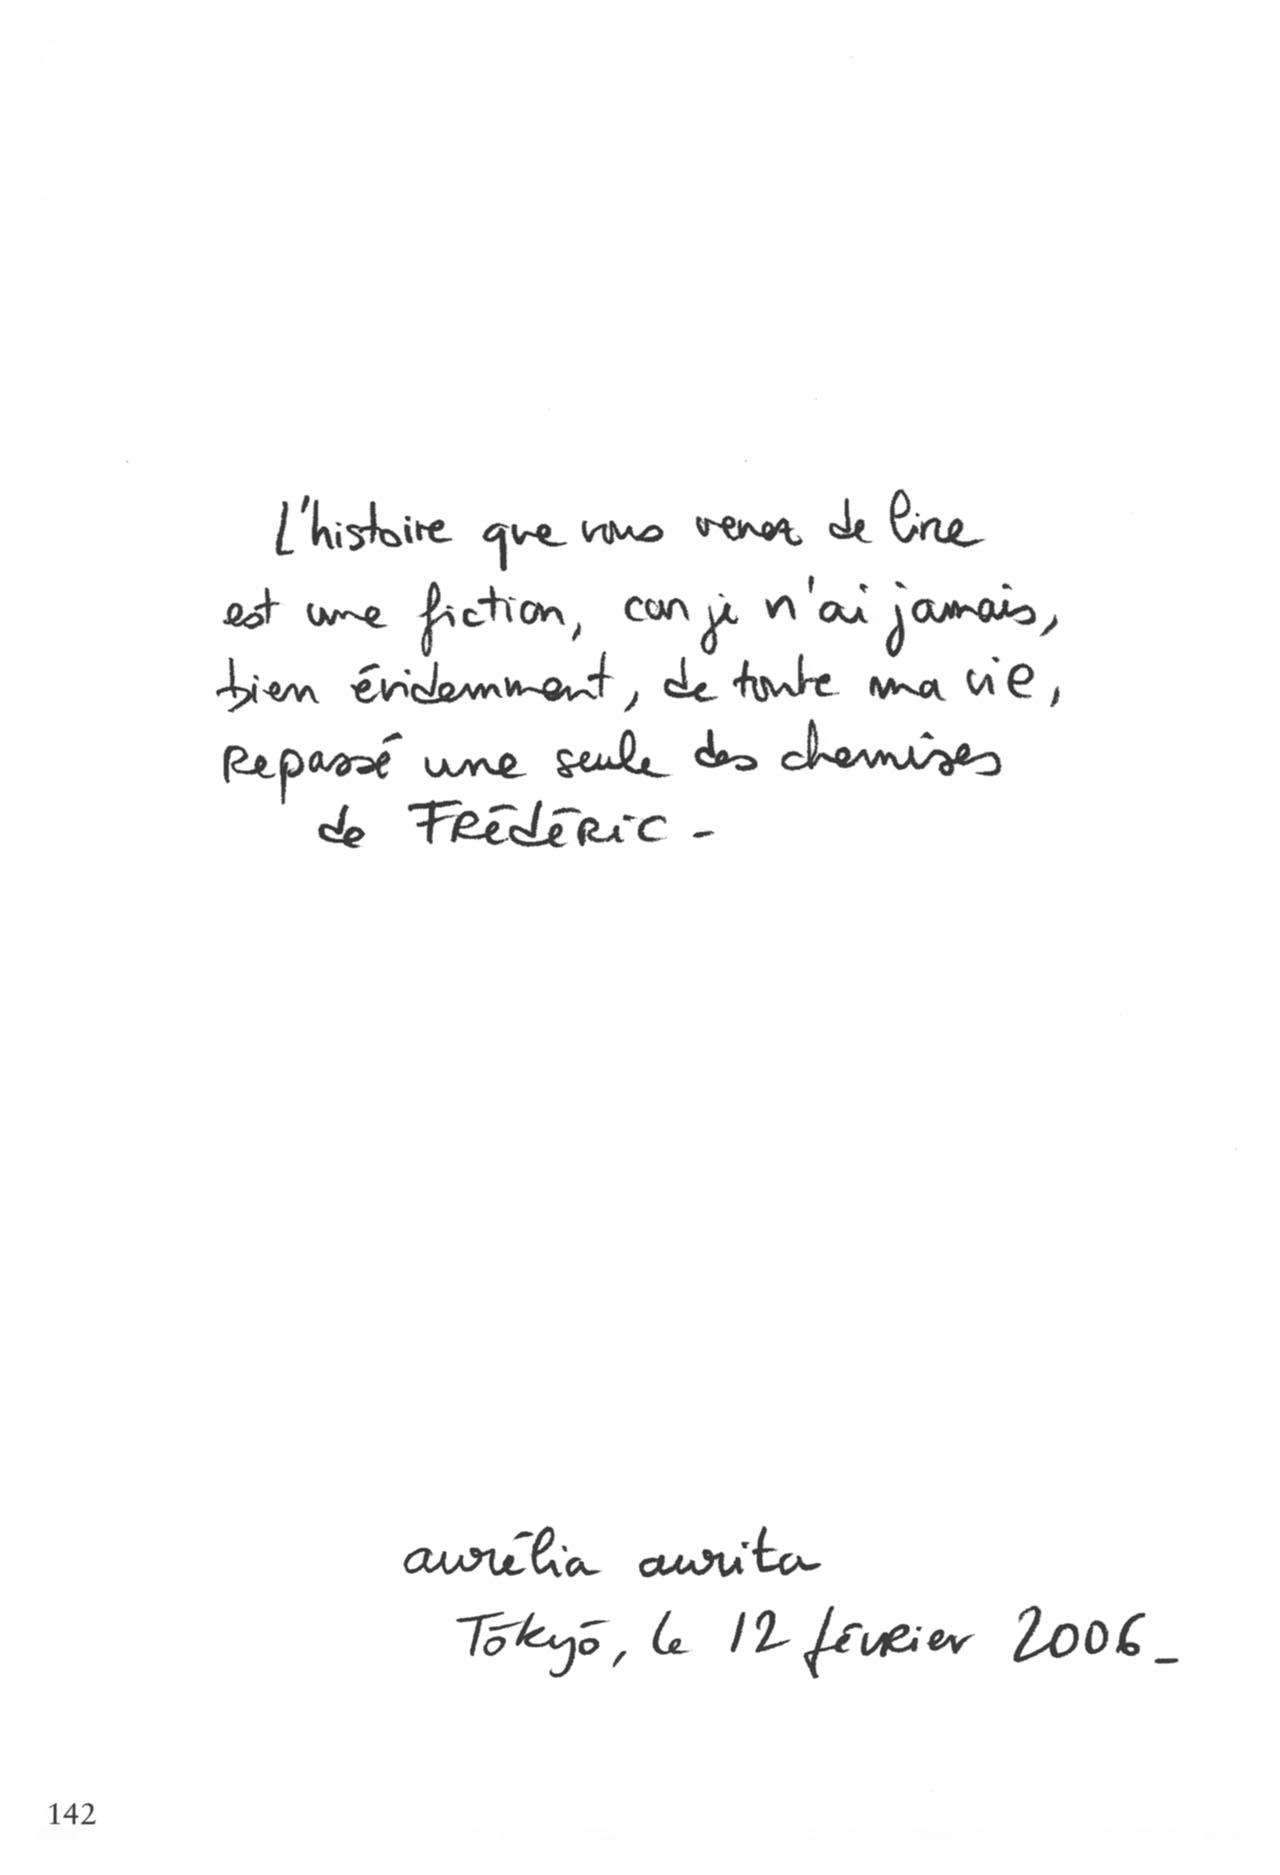 L'histoire que vous venez de lire
est une fiction, car je n'ai jamais,
bien évidemment, de toute ma vie,
Repassé une seule des chemises
de FRédéRiC -
aurélia aurita
Tōkyō, le 12 février 2006_
142